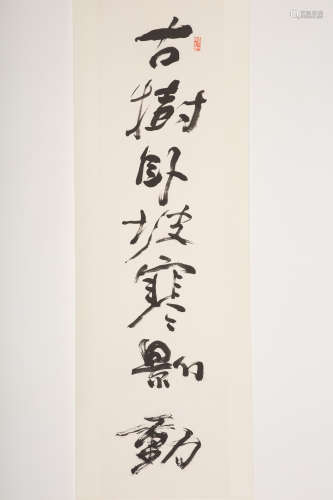 古樹卧坡寒影動